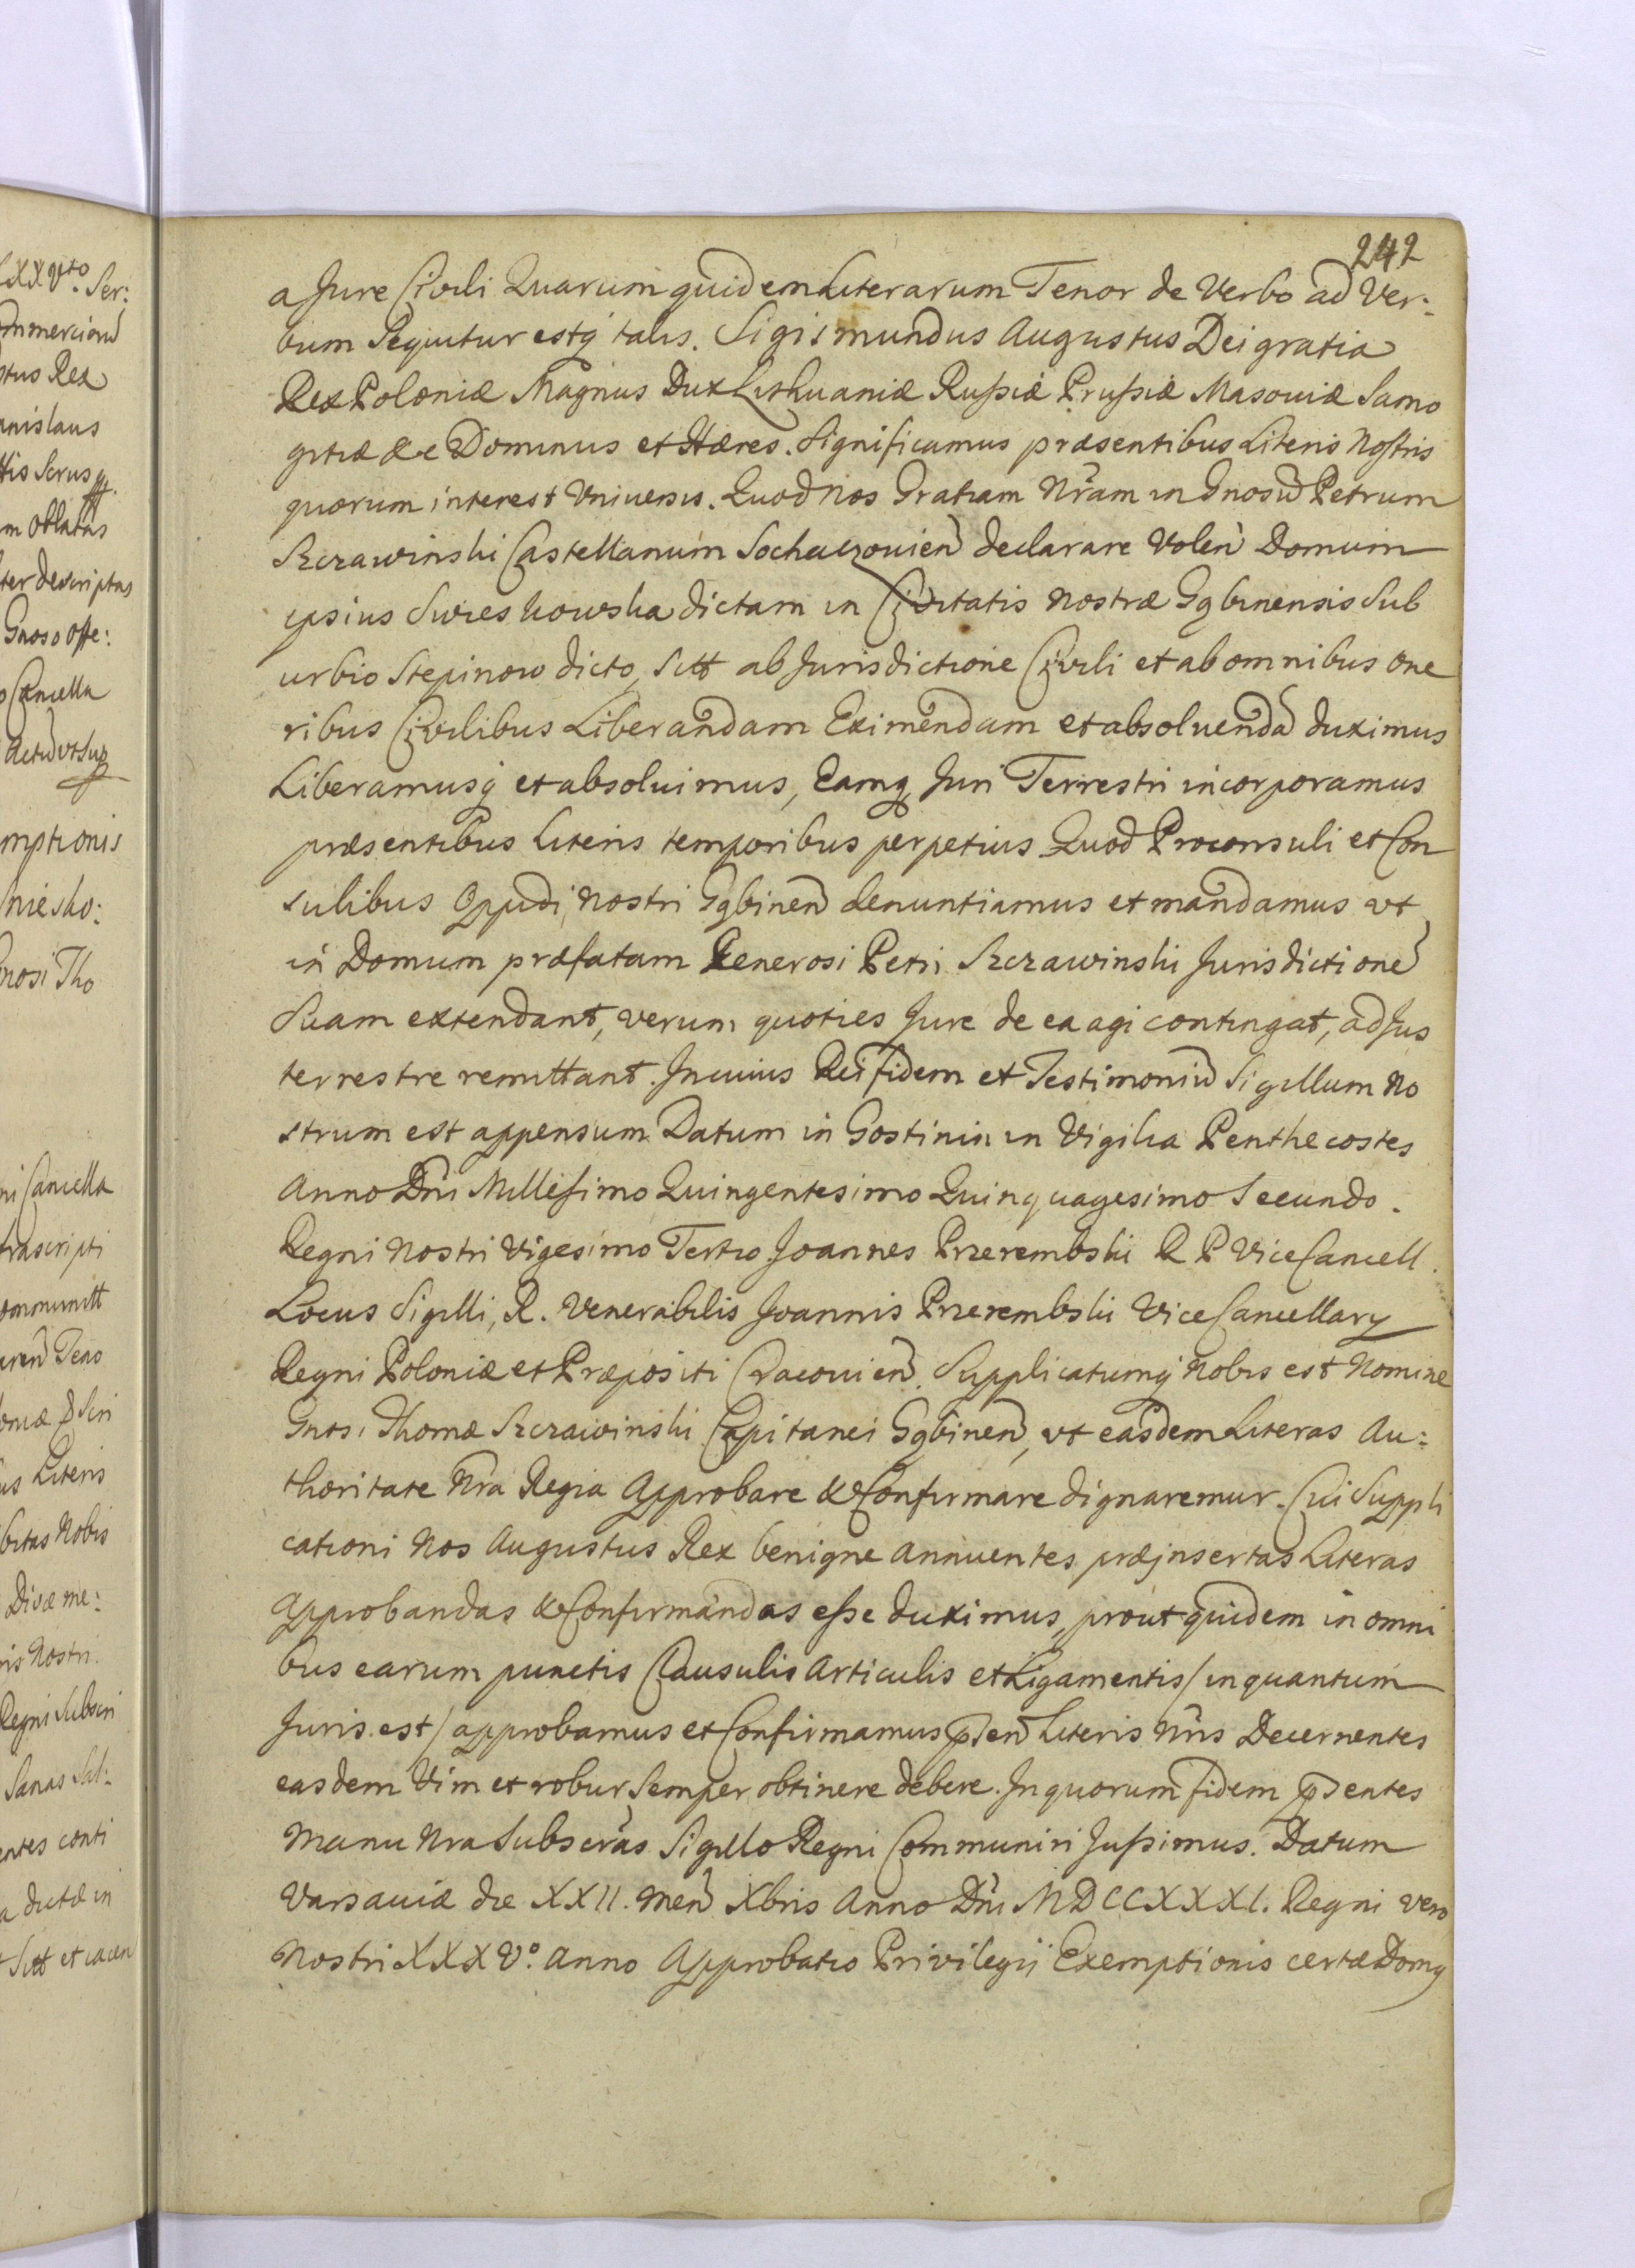 242
a Jure Civili Quarum quidem Literarum Tenor de Verbo ad Ver:
bum Sequitur estq́ talis. Sigismundus Augustus Dei gratia
Rex Poloniæ Magnus Dux Lithuaniæ Rußiæ Prußiæ Masouiæ Samo
gitiæ &c Dominus et Hæres. Significamus præsentibus Literis Nostris
quorum interest Vniuersis. Quod Nos Gratiam Nr̃am in Gnosũ Petrum
Sczawinski Castellanum Sochaczouien̄ declarare Volen̄ Domum
ipsius Swieszkowska dictam in Civitatis Nostræ Gąbinensis Sub
urbio Stepinow dicto, Sitt ab Jurisdictione Civili et ab omnibus one
ribus Civilibus Liberandam Eximendam et absoluendã duximus
Liberamusq́ et absoluimus, Eamq, Juri Terrestri incorporamus
præsentibus Literis temporibus perpetuis Quod Proconsuli et Con
sulibus Oppidi Nostri Gąbinen̄ denuntiamus et mandamus vt
in Domum præfatam Generosi Petri Sczawinski Jurisdictionẽ
Suam extendant, verum quoties Jure de ea agi contingat, ad Jus
terrestre remittant. In cuius Rei fidem et Testimoniũ Sigillum No
strum est appensum Datum in Gostinin in Vigilia Penthecostes
Anno Dn̄i Millesimo Quingentesimo Quinquagesimo Secundo.
Regni Nostri Vigesimo Tertio Joannes Przerembski R P ViceCancell.
Locus Sigilli, R. Venerabilis Joannis Przerembski ViceCancellary
Regni Poloniæ et Præpositi Cracouien̄. Supplicatumq́ Nobis est Nomine
Gnosi Thomæ Sczawinski Capitanei Gąbinen̄, vt easdem Literas Au:
thoritate Nr̃a Regia Approbare & Confirmare dignaremur. Cui Suppli
cationi Nos Augustus Rex benigne annuentes præjnsertas Literas
Approbandas & Confirmandas eße duximus, prout quidem in omni
bus earum punctis Clausulis Articulis et Ligamentis / inquantum
Juris est / approbamus et Confirmamus p̄sen̄ Literis Nr̃is Decernentes
easdem Vim et robur Semper obtinere debere. In quorum fidem p̄sentes
Manu Nra Subscr̃as Sigillo Regni Communiri Jußimus. Datum
Varsauiæ die XXII. Men̄ Xbris Anno Dn̄i MDCCXXXI. Regni vero
Nostri XXXV.º Anno Approbatio Privilegij Exemptionis certæ Domq